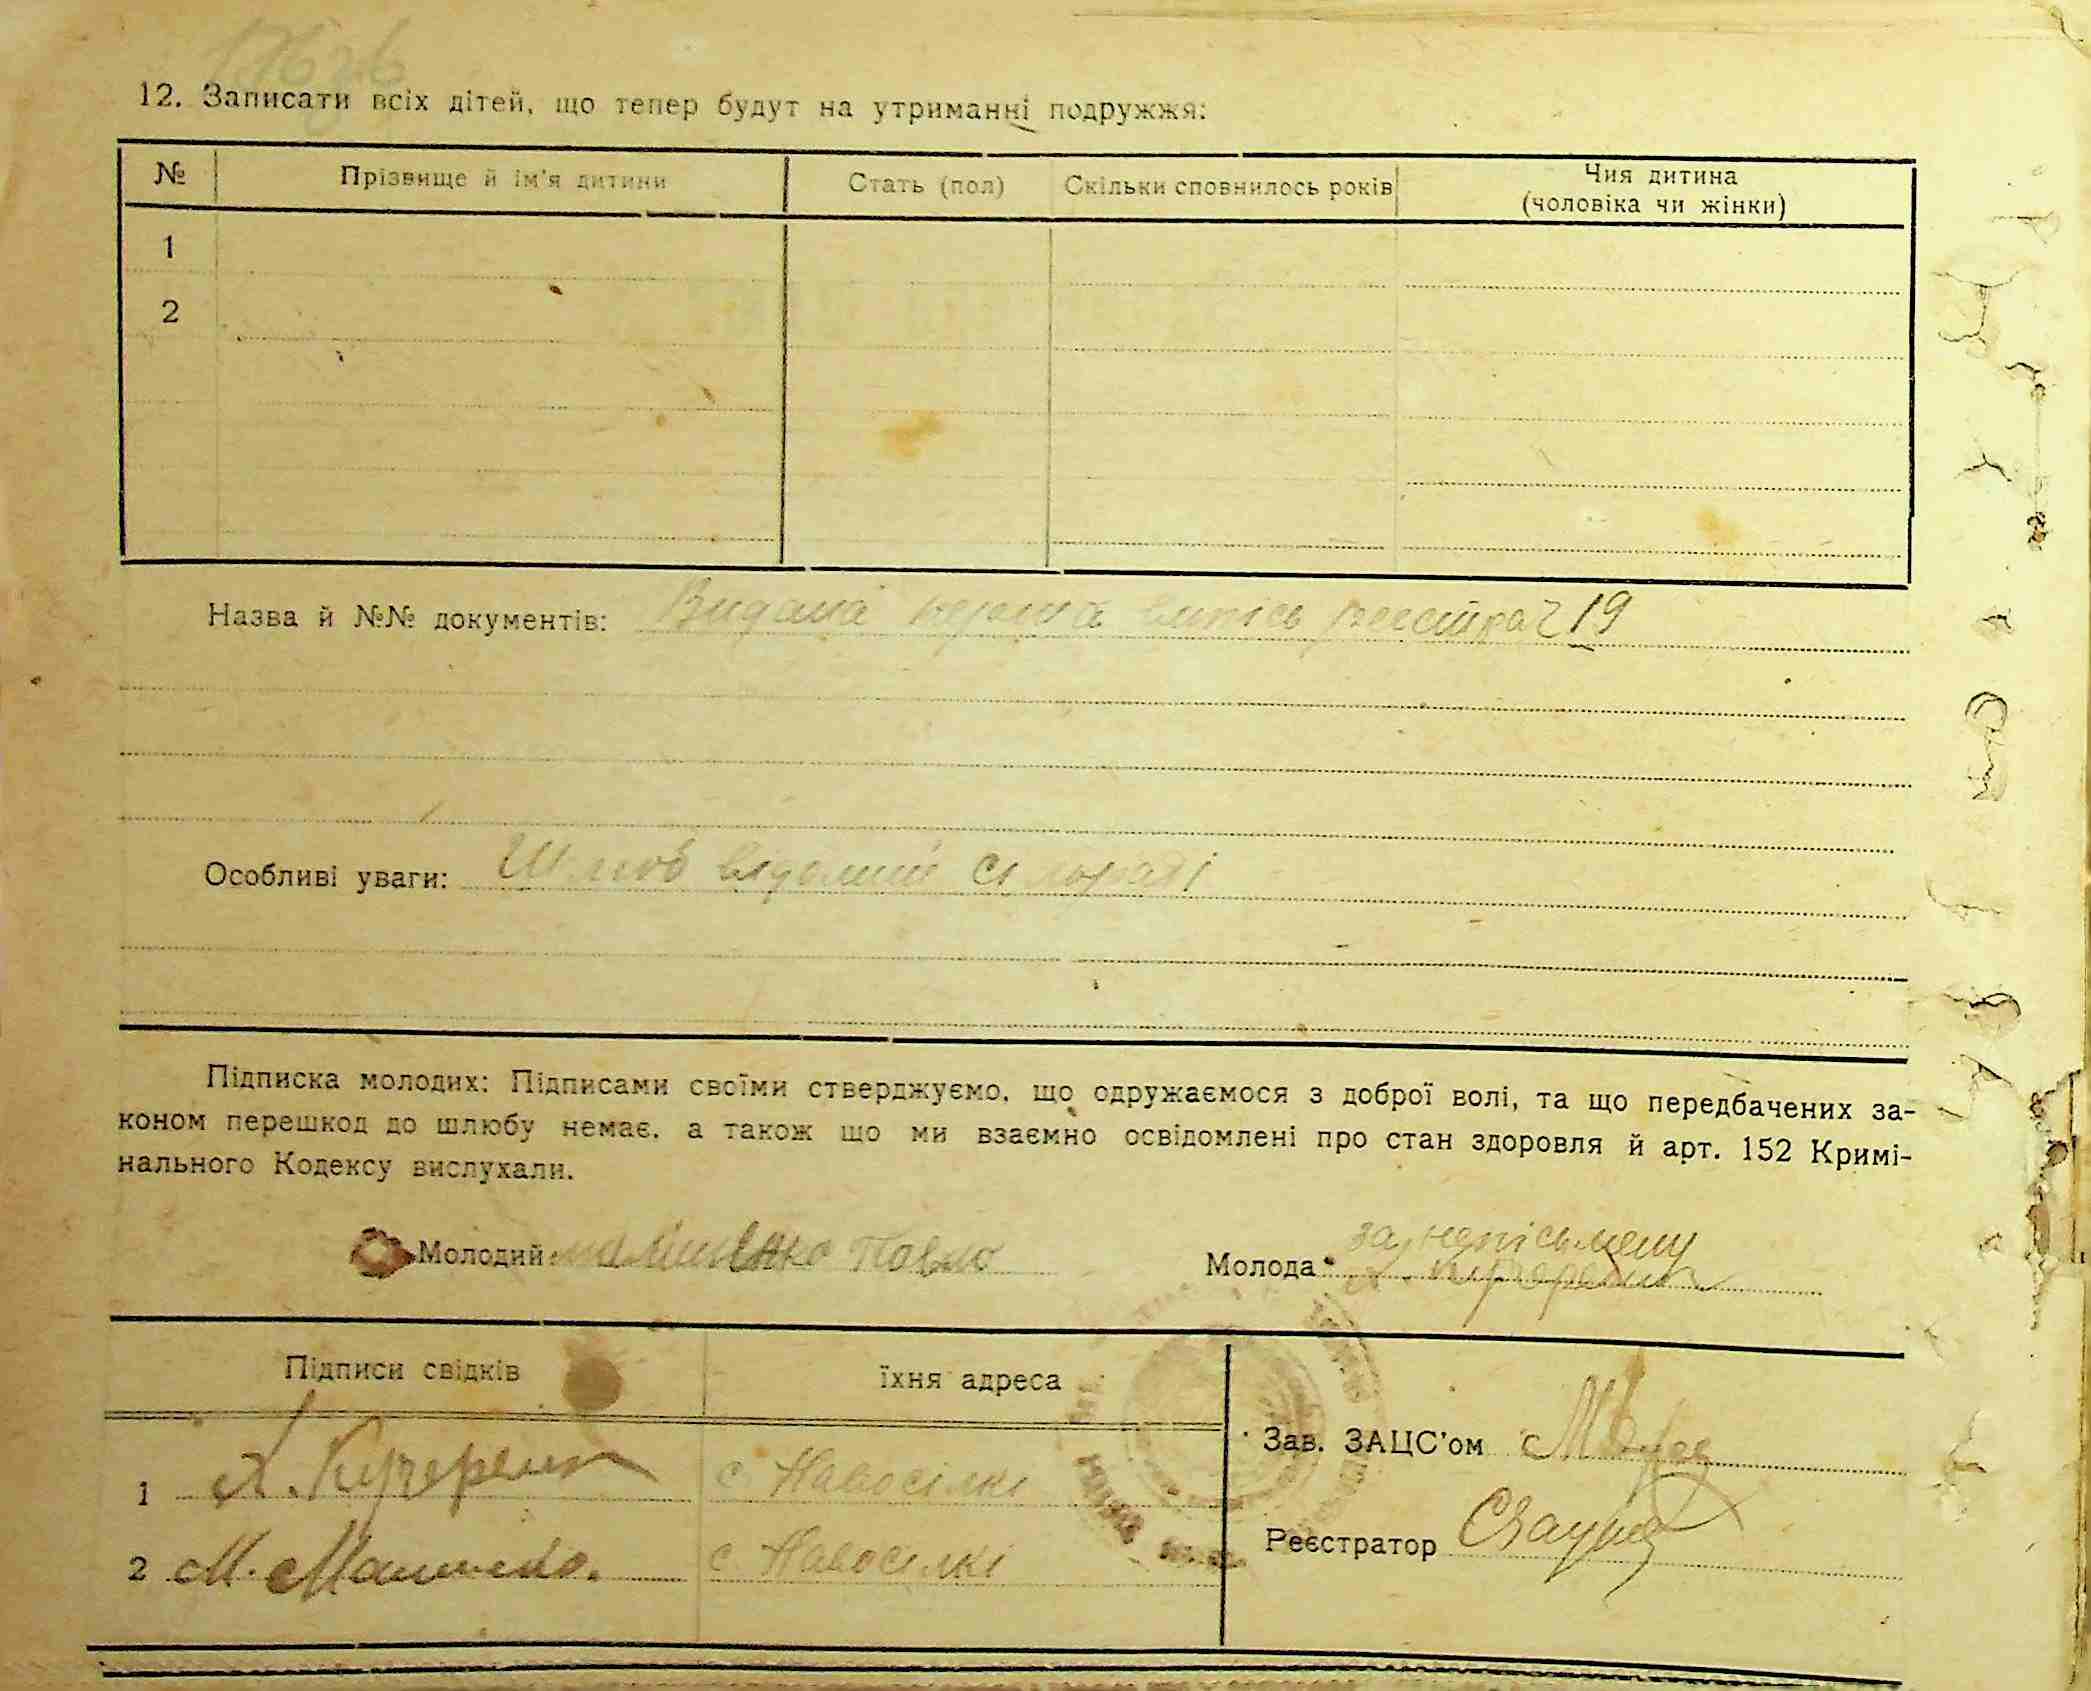 12. Записати всіх дітей, що тепер будут на утриманні подружжя:
№ Прізвище й ім'я дитини Стать (пол) Скільки сповнилось років Чия дитина
(чоловіка чи жінки)
1
2
Назва й №№ документів: Видана реєстра 19
Особливі уваги: Шлюб відомий
Підписка молодих: Підписами своїми стверджуємо, що одружаємося з доброї волі, та що передбачених за-
коном перешкод до шлюбу немає, а також що ми взаємно освідомлені про стан здоровля й арт. 152 Кримі-
нального Кодексу вислухали.
за непісьмену
Молодий Павло Молода Х. Кучеренко
Підписи свідків їхня адреса
Зав. ЗАЦС'ом
1 Х. Кучеренко с Новосілкі
Реєстратор
2 М. с Новосілкі